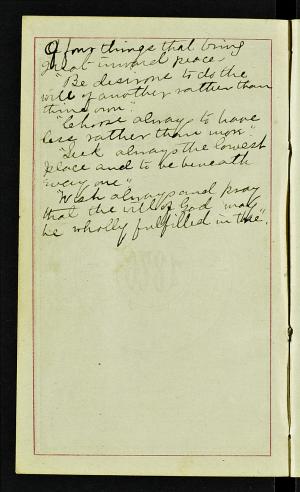 Of four things that bring
great inward peace.
"Be desirous to do the
will of another rather than
thine own."
"Choose always to have
less rather than more"
"Seek always the lowest
place and to be beneath
every one"
"Wish always and pray
that the will of God may
be wholly fulfilled in thee".